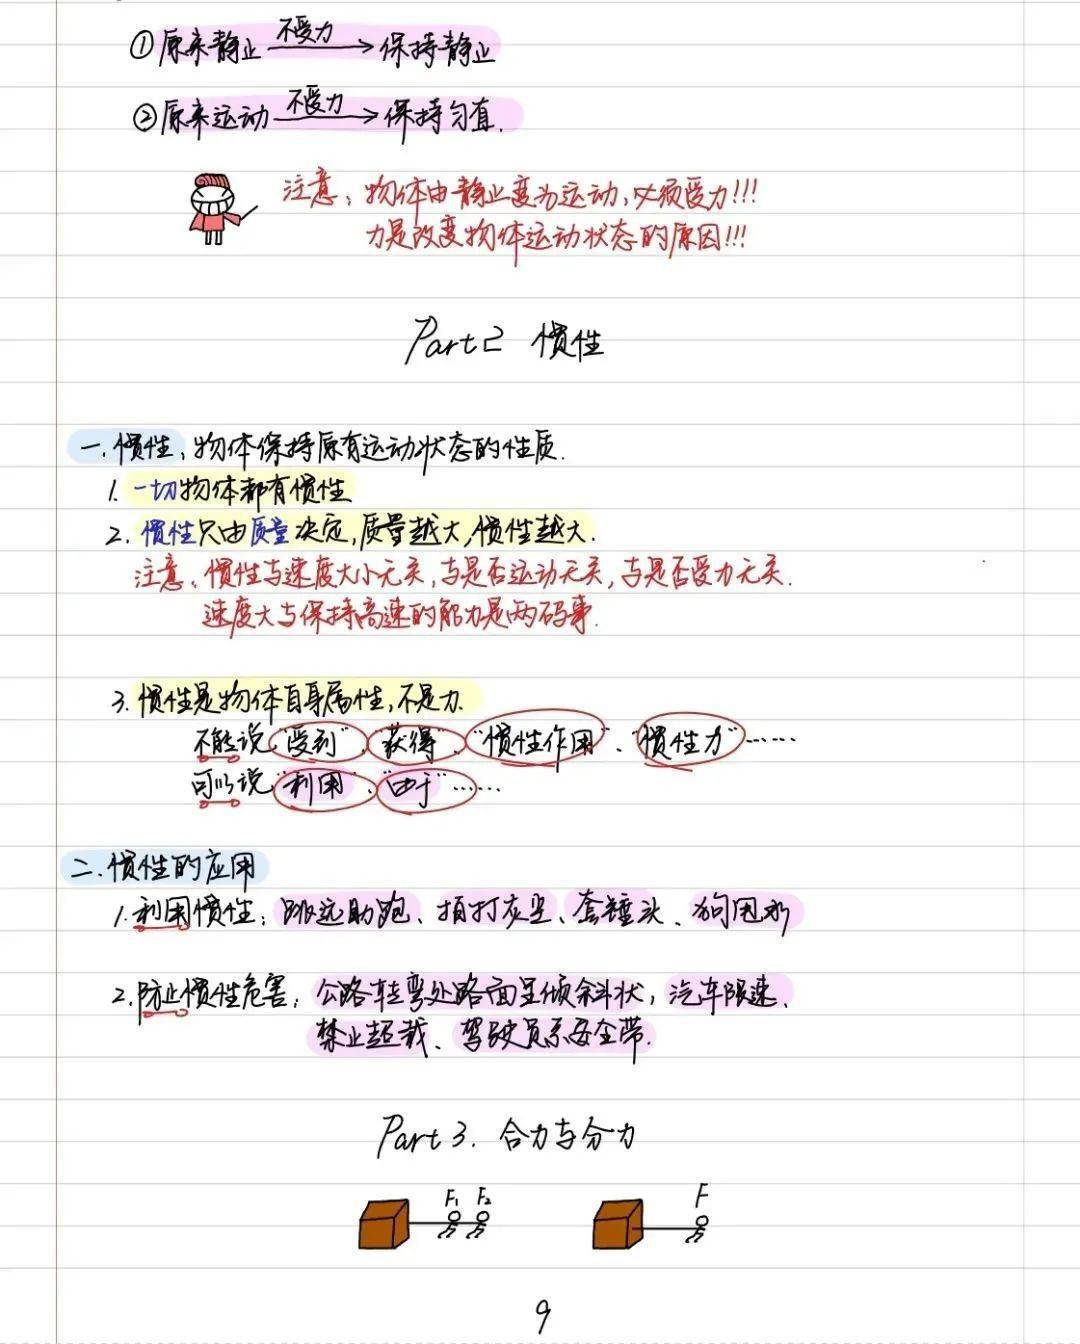 ①原来静止 不受力 保持静止
②原来运动 不受力 保持匀直.
注意:物体由静止变为运动,必须受力!!!
力是改变物体运动状态的原因!!!
Part 2 惯性
一.惯性:物体保持原有运动状态的性质.
1. 一切物体都有惯性
2. 惯性只由质量决定,质量越大,惯性越大.
注意:惯性与速度大小无关,与是否运动无关,与是否受力无关.
速度大与保持高速的能力是两码事.
3. 惯性是物体自身属性,不是力.
不能说“受到”、“获得”、“惯性作用”、“惯性力”……
可以说“利用”、“由于”……
二.惯性的应用
1.利用惯性:跳远助跑、拍打灰尘、套锤头、狗甩水
2.防止惯性危害:公路转弯处路面呈倾斜状,汽车限速、
禁止超载、驾驶员系安全带.
Part 3. 合力与分力
F₁ F₂ F
9